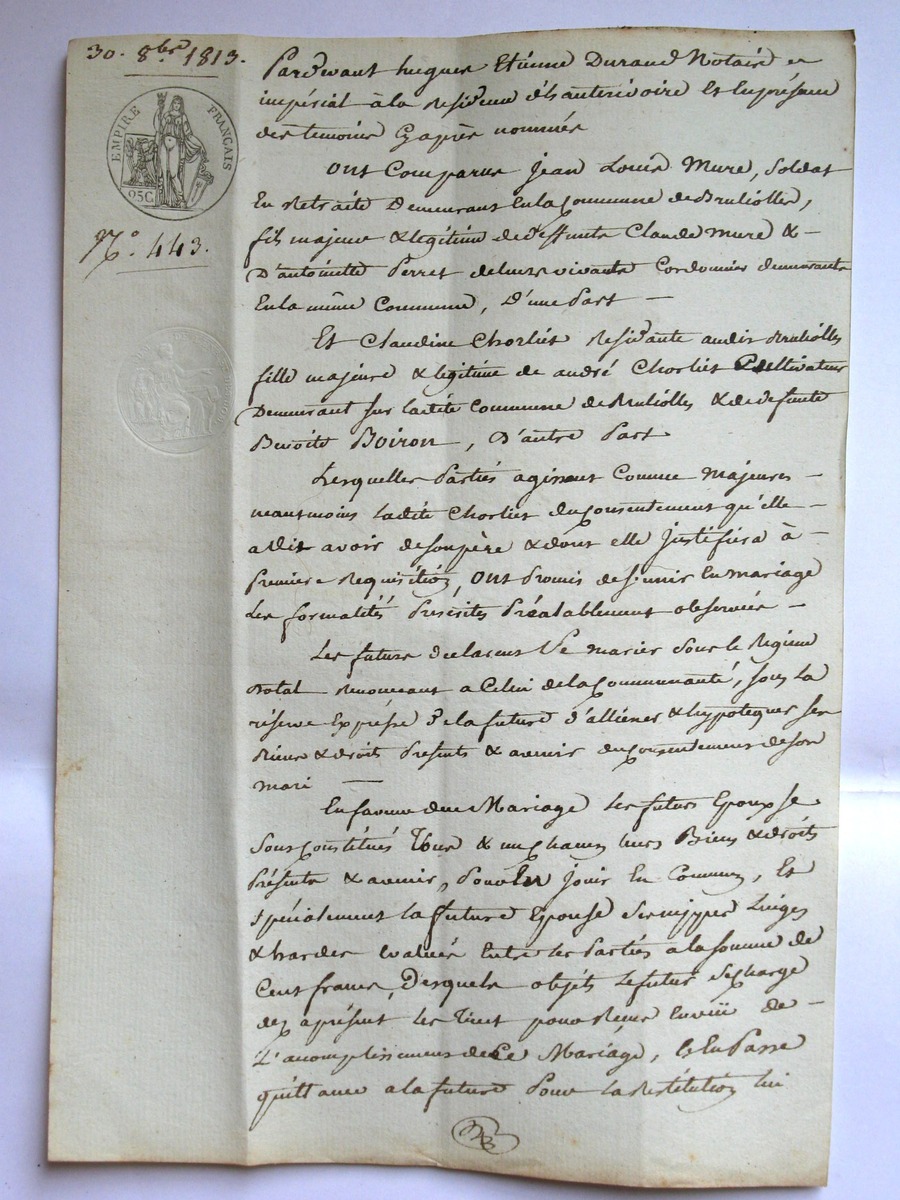 30. 8bre 1813.
EMPIRE FRANÇAIS
25C
No. 443.
Pardevant hugues Etienne Durand Notaire
impérial à la Residence d'hauterivoire Et En présence
des temoins Cyaprès nommés
Ont Comparus Jean Louis Mure, Soldat
En Retraite Demeurant En la Commune de Bruliolles,
fils majeur & legitime de deffunts Claude mure & -
D'antoinette Perret de leurs vivants Cordonnier demeurants
En la même Commune, D'une Part -
Et Claudine Chorliet Residante audit Brulliolles
fille majeure & legitime de andré Chorliet Cultivateur
Demeurant sur ladite Commune de Brulliolles & de defunte
Benoite Boiron, D'autre Part
Lesquelles Parties agissant Comme Majeures -
neantmoins Ladite Chorliet du Consentement qu'elle -
a dit avoir de son père & dont elle justifiera à -
Premiere Requisition, Ont Promis de s'unir En mariage
Les formalités Prescrites Préalablement observées -
Les futurs declarent Se marier Sous le Regime
Dotal Renonceant a Celui de la Communauté, sous La
réserve Expresse de la future d'alliéner & hypotequer ses
Biens & droits Presents & avenir du Consentement de son
mari -
En faveur du Mariage Les futurs Epoux Se
Sont Constitués Tous & un Chacun leurs Biens & droits
Présents & avenir, Pour En jouir En Commun, Et
Spécialement La future Epouse Ses nippes Linges
& hardes Evalués Entre Les Parties a la somme de
Cent francs, Desquels objets Le futur Se Charge
dez aprésent Les Tient pour Reçus
L'acomplissement de Ce Mariage, Et En Passe
quittance a la future Pour La Restitution lui